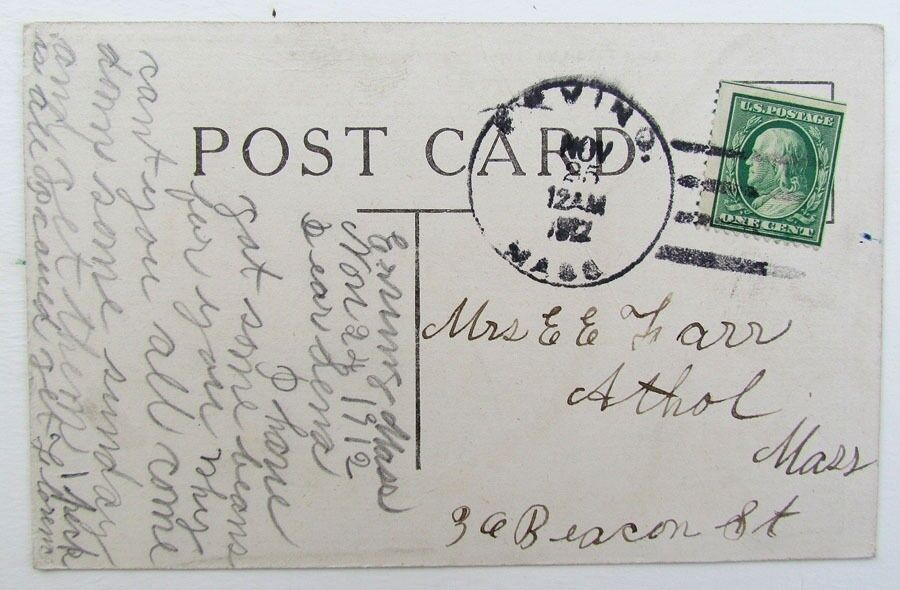 POST CARD
ERVING.
NOV
25
12 AM
1912
MASS
U.S. POSTAGE
ONE CENT
Mrs E E Farr
Athol
Mass
36 Beacon St
Mass
Nov 24 1912
Dear Lena
I have
got some beans
for you why
cant you all come
down some sunday
and get them
is able to and